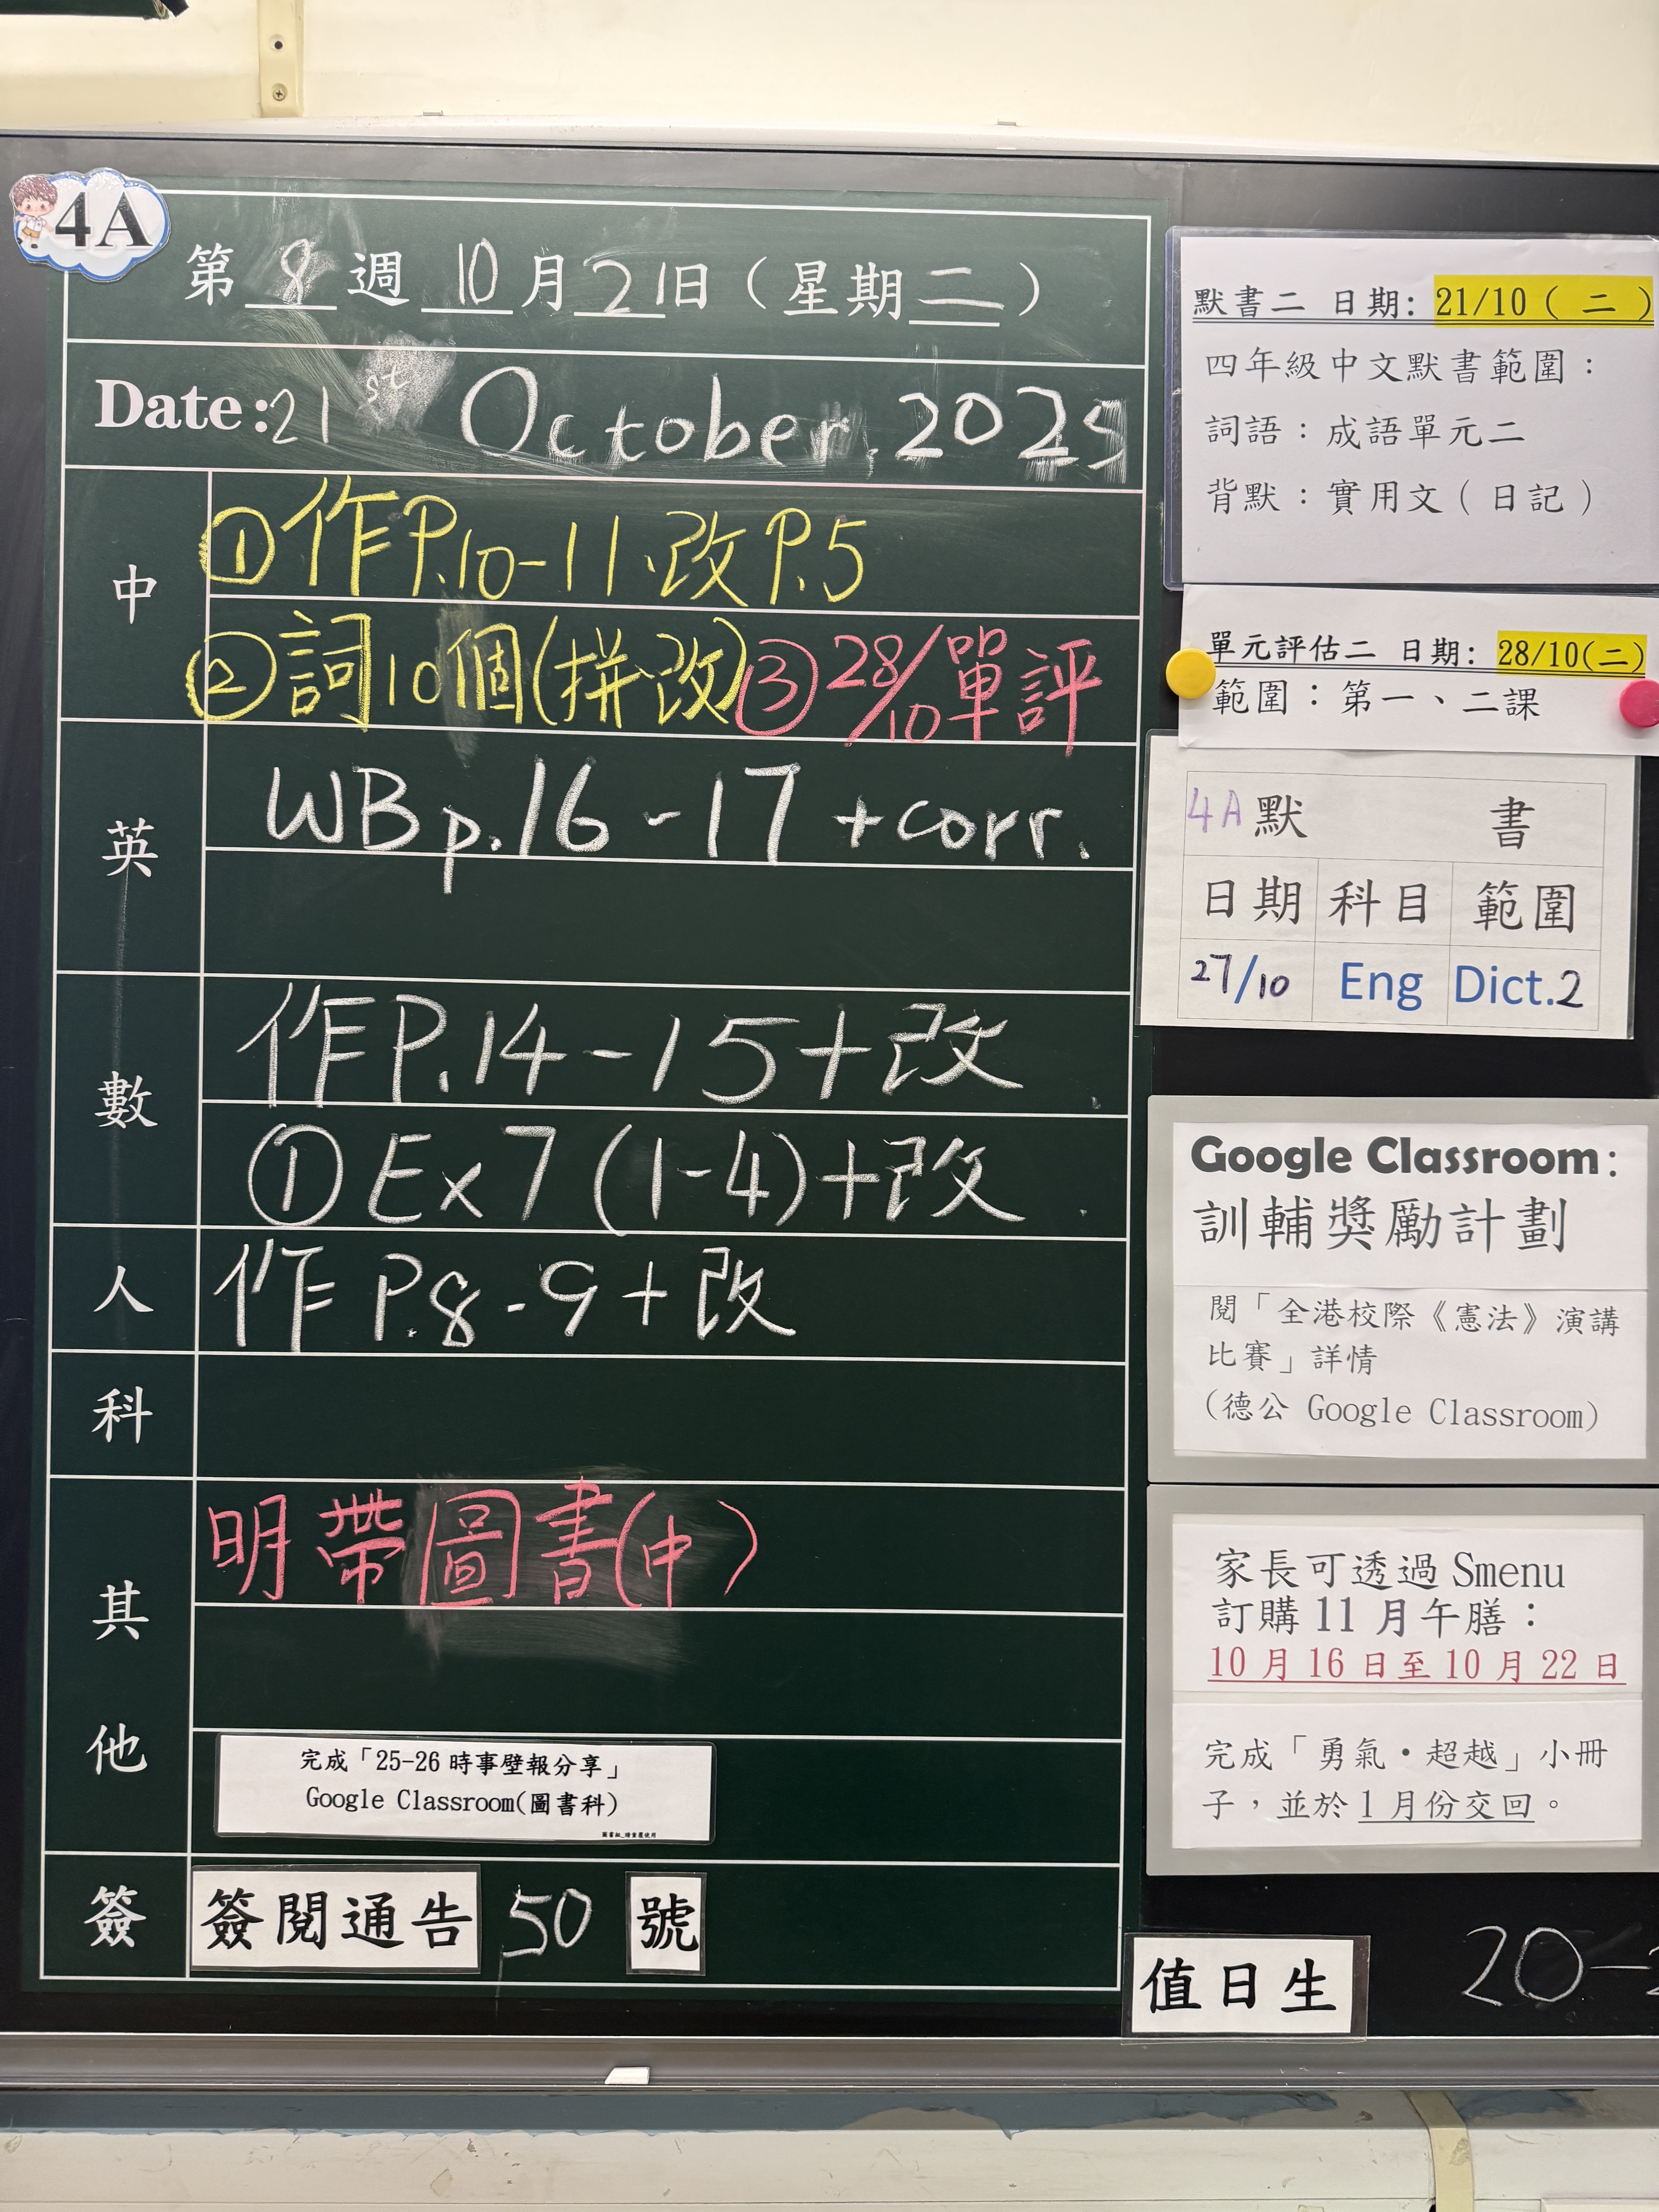 4A
第 8 週 10 月 21 日 ( 星期 二 )
Date: 21st October. 2025
中
①作P.10-11.改P.5
②詞10個(拼.改)③28/10單評
英
WB p.16-17 + corr.
數
作P.14-15+改
①Ex7(1-4)+改
人
作 P.8-9+改
科
其
明帶圖書(中)
他
完成「25-26 時事壁報分享」
Google Classroom(圖書科)
簽
簽閱通告 50 號
默書二 日期: 21/10 ( 二 )
四年級中文默書範圍：
詞語：成語單元二
背默：實用文(日記)
單元評估二 日期: 28/10(二)
範圍：第一、二課
4A 默 書
日期 科目 範圍
27/10 Eng Dict.2
Google Classroom:
訓輔獎勵計劃
閱「全港校際《憲法》演講
比賽」詳情
(德公 Google Classroom)
家長可透過 Smenu
訂購 11 月午膳：
10 月 16 日至 10 月 22 日
完成「勇氣・超越」小冊
子，並於 1 月份交回。
值日生 20-